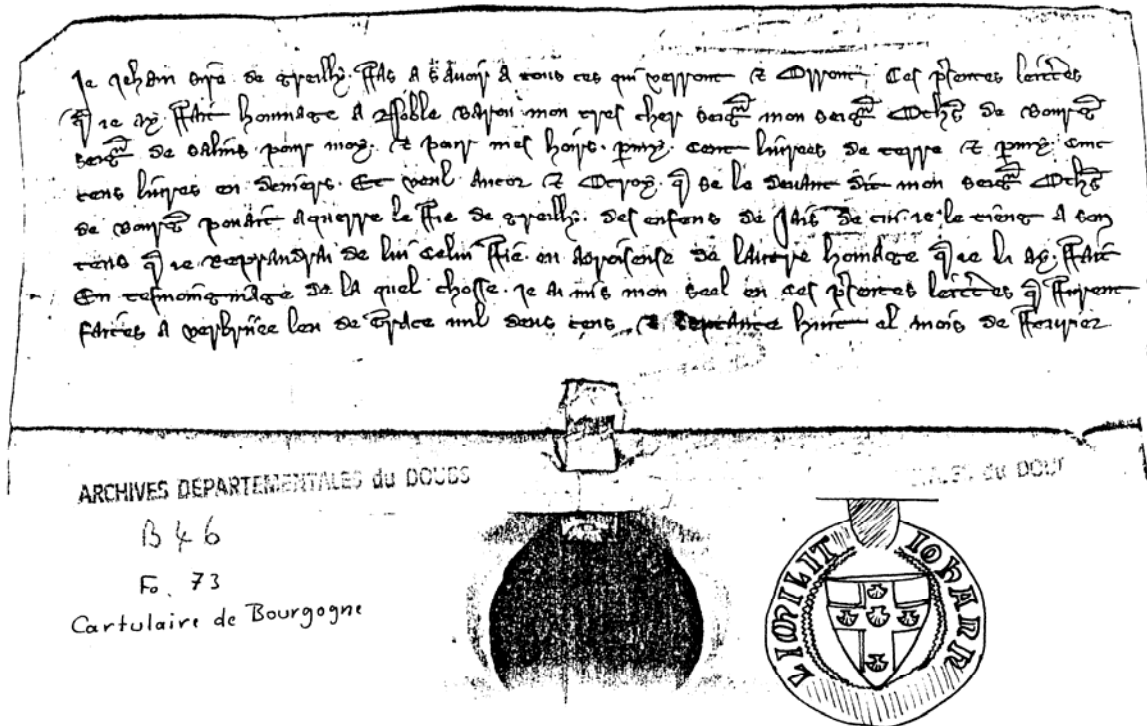 Je Jehan sire de Greilly. ffas a savoir a tous ces qui verront & Orront Ces p̄sentes lettres
q̄ ie ay ffait hommage a Noble Baron mon tres cher seign̄ mon seign̄ Othe de Bourḡ
seign̄ de Salins pour moy. & pour mes hoirs. parmy. cent livrees de terre & parmy. cinc
cens livres en deniers. Et veul ancor & Ottroy. q̄ se le devant dit mon seign̄ Othe
de Bourḡ povait aquerre le ffie de Greilly. des enfens de Jais de cui ie le tieng a son
tens q̄ ie reprandrai de lui celui ffie. en acroisense de lautre homage q̄ ie li ay. ffait
En tesmoingnage de la quel chosse. Je ai mis mon seal en ces p̄sentes lettres q̄ ffurent
faites a len de Grace mil deus cens & septante huit el mois de ffevrier
ARCHIVES DEPARTEMENTALES du DOUBS
B 46
Fo. 73
Cartulaire de Bourgogne
IOHANN
MILIT